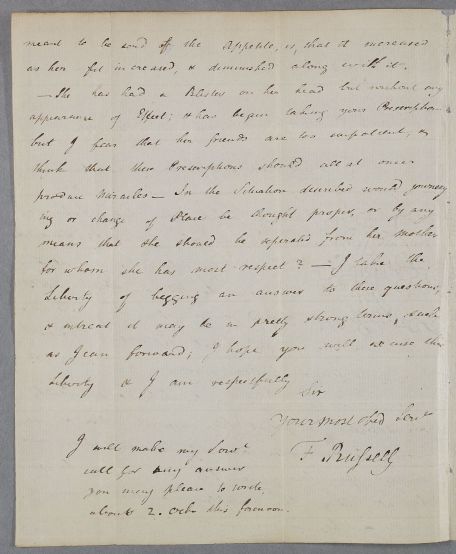 meant to be said of the Appetite, is, that it increased
as her fit increased, & diminished along with it.
— She has had a Blister on her head but without any
appearance of Effect; & has begun taking your Prescription
but I fear that her friends are too impatient, &
think that these Prescriptions should all at once
produce Miracles — In the Situation described would journey
ing or change of Place be thought proper, or by any
means that she should be seperated from her Mother
for whom she has most respect? — I take the
Liberty of begging an answer to these questions,
& intreat it may be in pretty strong terms, such
as I can forward; I hope you will excuse this
Liberty & I am respectfully
Sir
your most obed Servt
F Russell
I will make my Servt
call for any answer
you may please to write
about 2. o'clo this forenoon.